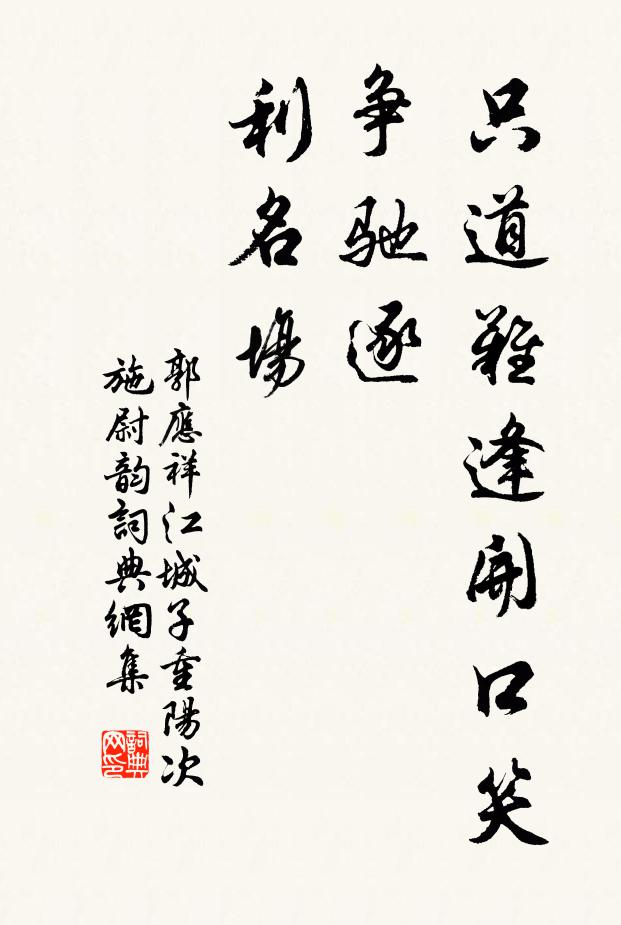 只道難逢開口笑
争馳逐
利名場
郭應祥江城子重陽次
施尉韵詞典網集
詞典网印